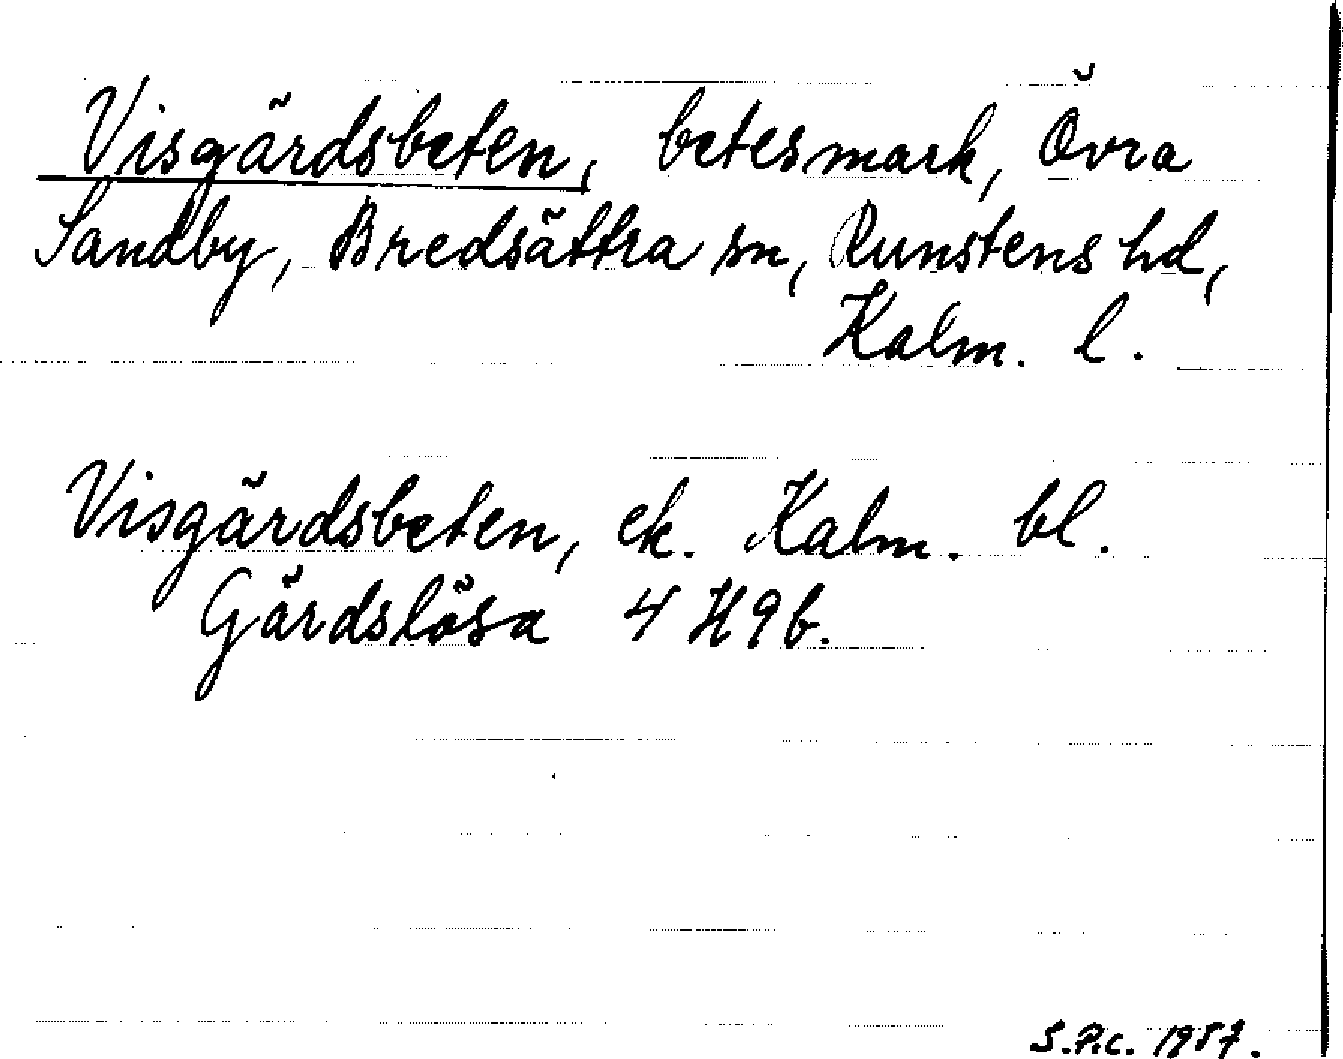 Visgärdsbeten, betesmark, Övra
Sandby, Bredsättra sn, Runstens hd,
Kalm. l.
Visgärdsbeten, ek. Kalm. bl.
Gärdslösa 4 H 9 b.
S.P.C. 1957.